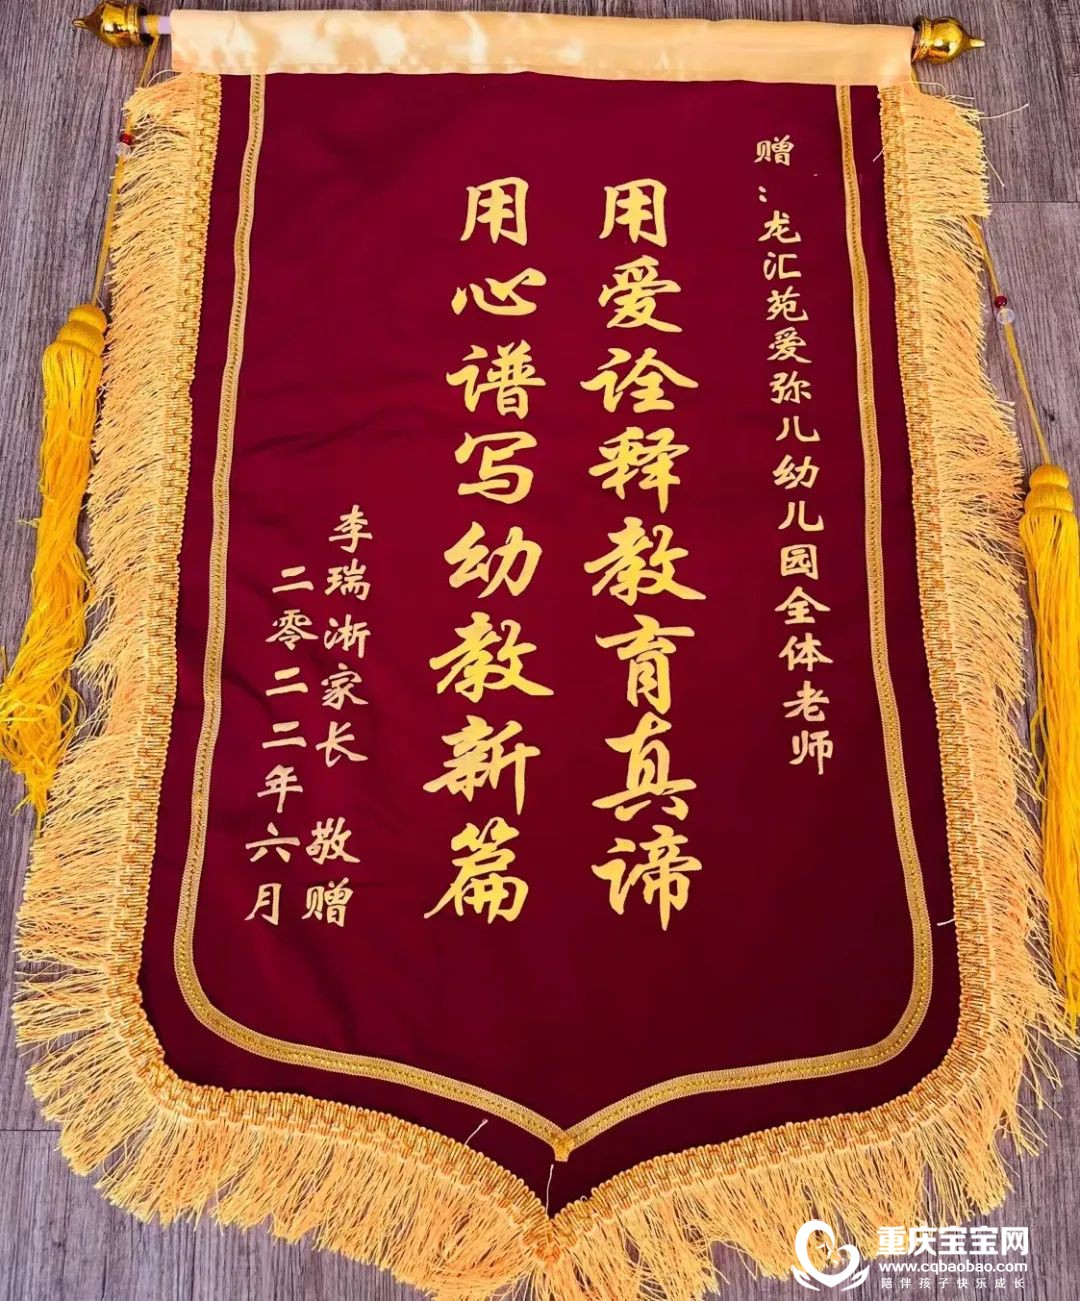 赠:龙汇苑爱弥儿幼儿园全体老师
用爱诠释教育真谛
用心谱写幼教新篇
李瑞淅家长 敬赠
二零二二年六月
重庆宝宝网
www.cqbaobao.com
陪伴孩子快乐成长